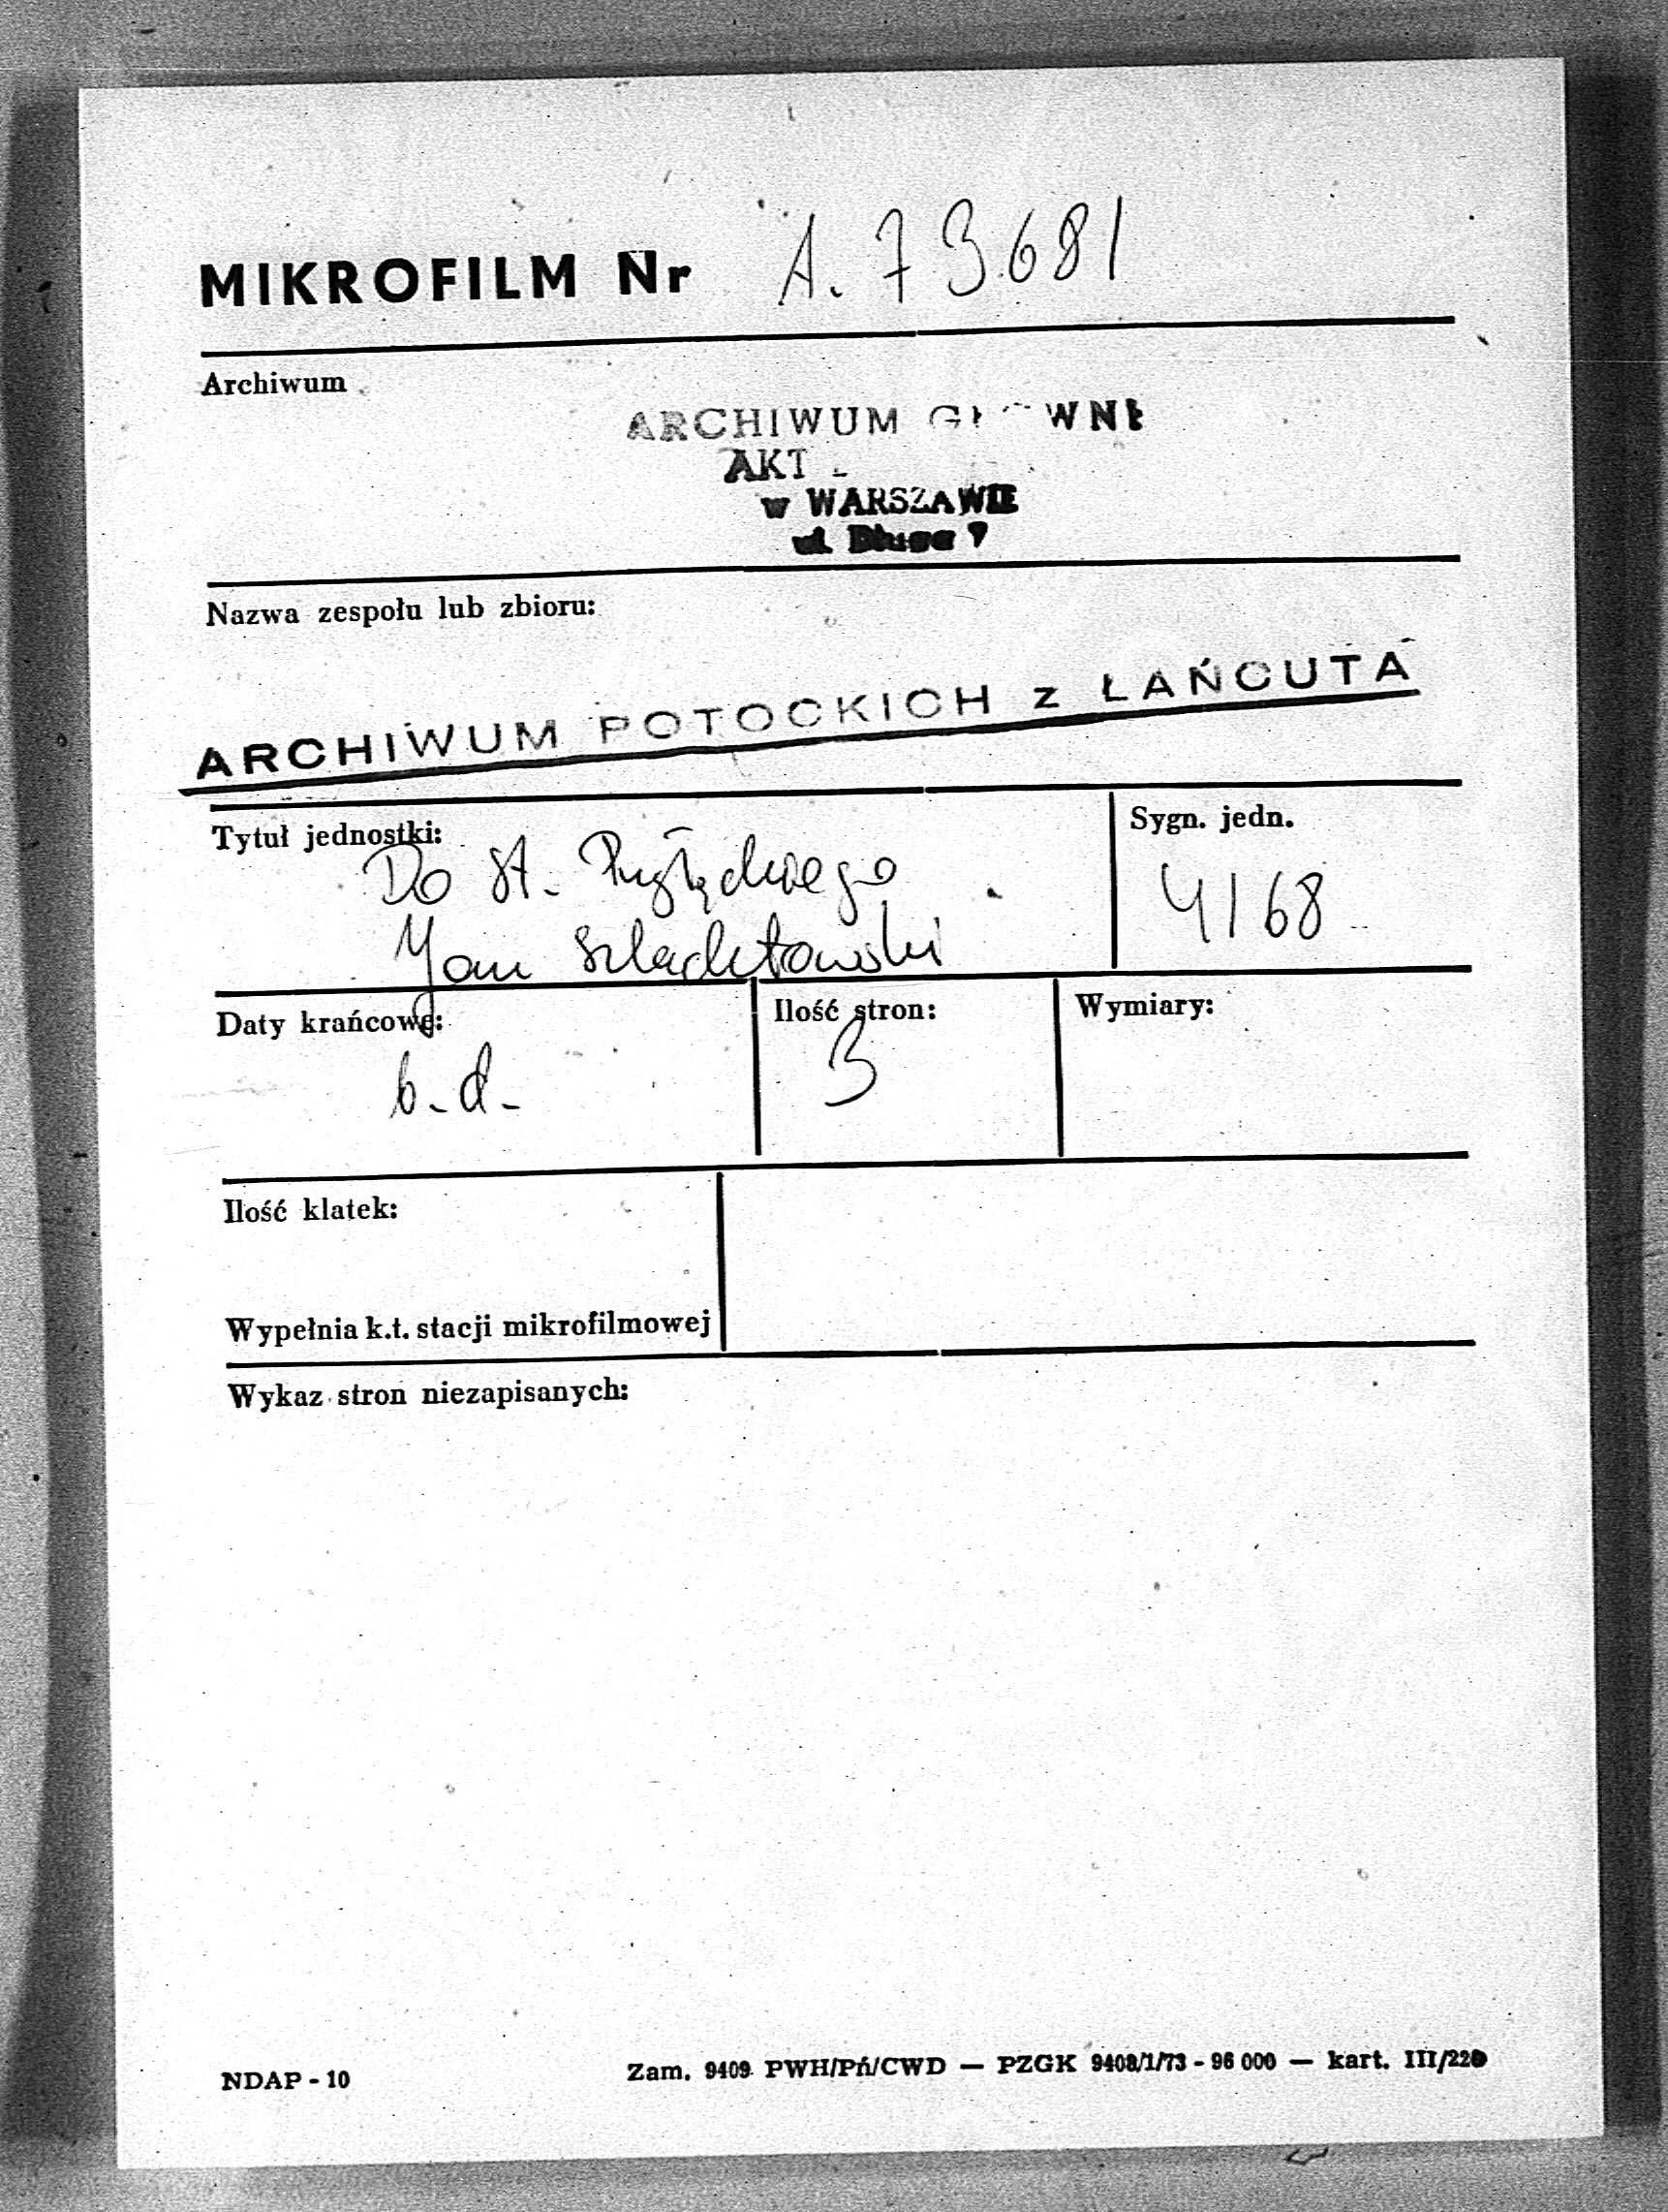 MIKROFILM Nr A. 73681
Archiwum
ARCHIWUM
AKT
w WARSZAWIE
ul. Długa 7
Nazwa zespołu lub zbioru:
ARCHIWUM POTOCKICH z ŁAŃCUTA
Tytuł jednostki:
Sygn. jedn.
Do St.
4168
Jan Szlachetowski
Daty krańcowe:
Ilość stron:
Wymiary:
b.d.
3
Ilość klatek:
Wypełnia k.t. stacji mikrofilmowej
Wykaz stron niezapisanych:
NDAP - 10
Zam. 9409 PWH/Pń/CWD — PZGK 9408/1/73 - 96 000 — kart. III/220